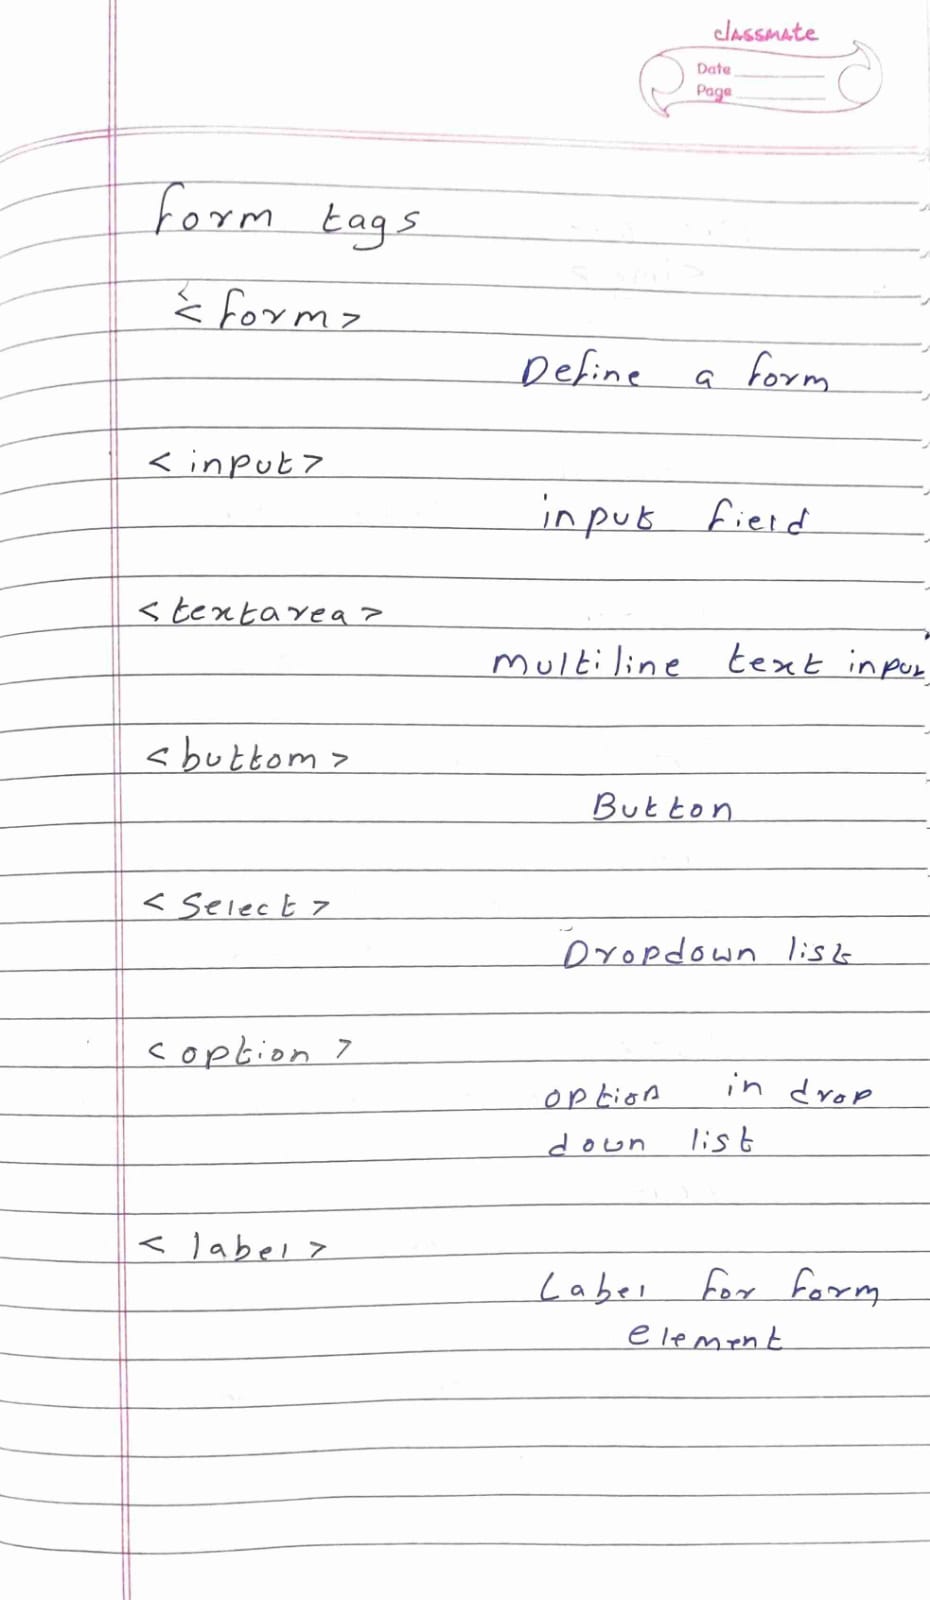 classmate
Date
Page
Form tags
<form>
Define a form
<input>
input field
<textarea>
multiline text input
<buttom>
Button
<Select>
Dropdown list
<option>
option in drop
down list
<label>
Label for form
element